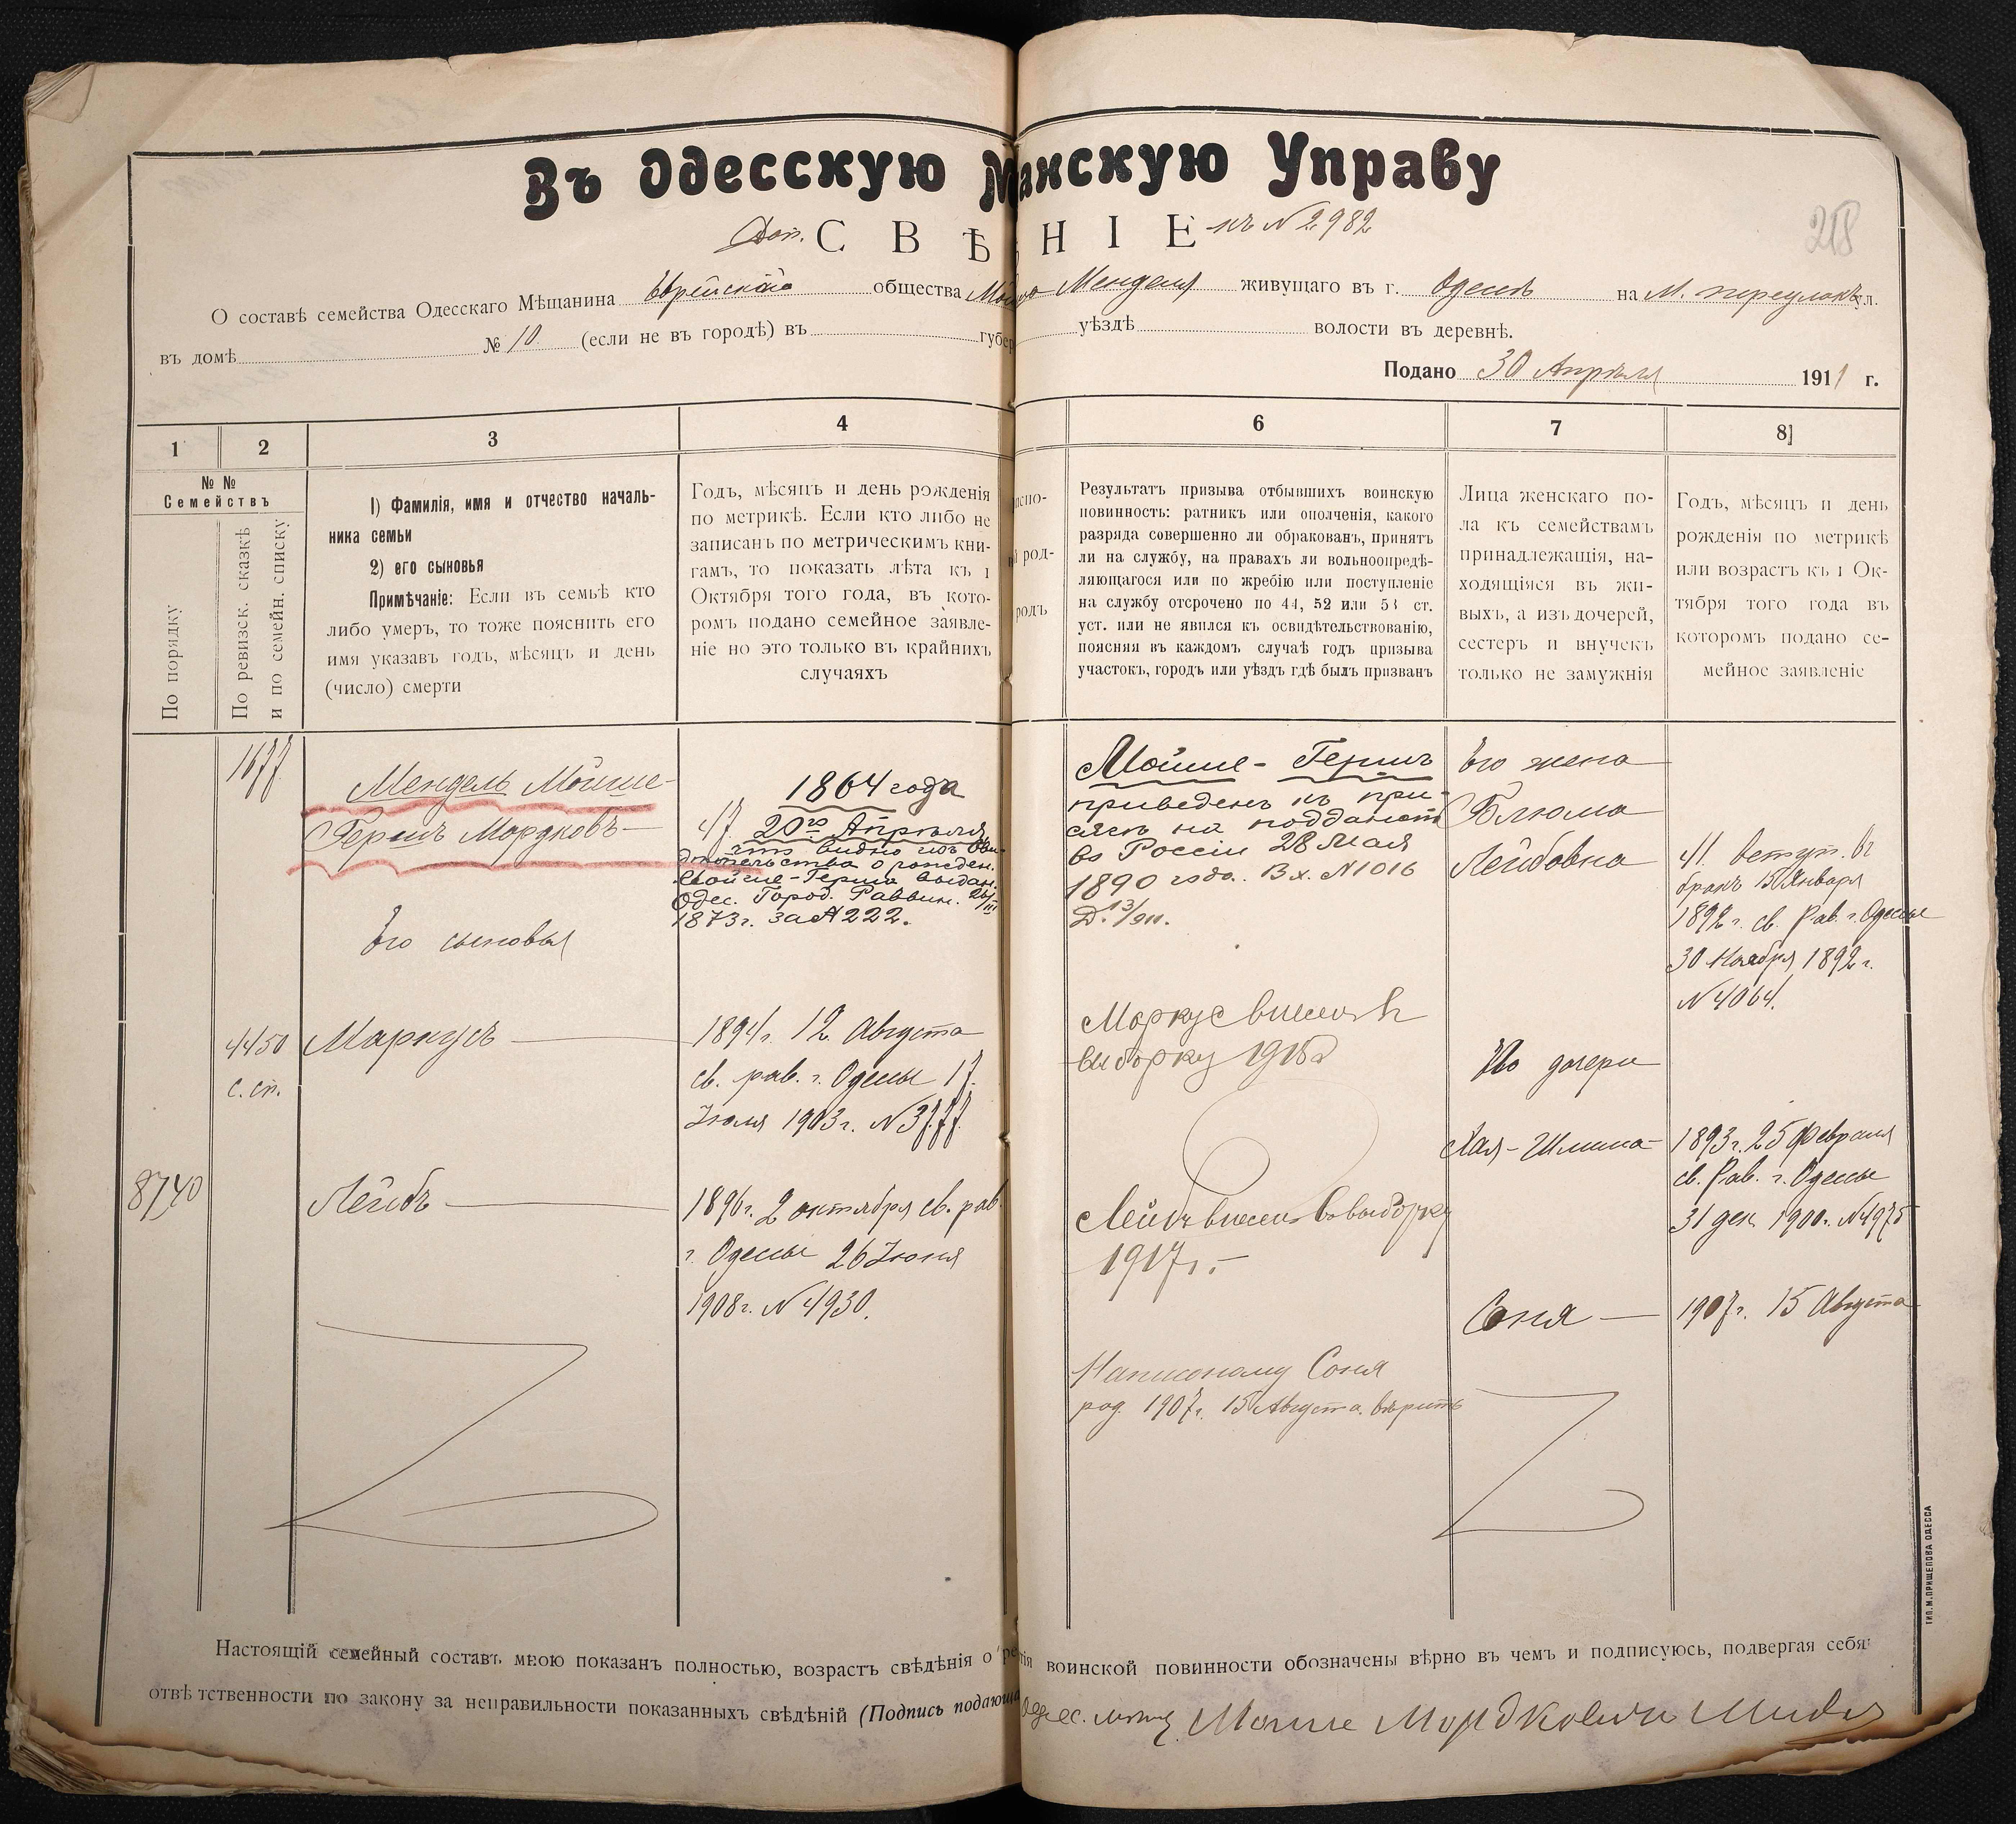 Въ Одесскую М анскую Управу
Доп. С В Ѣ Н І Е къ № 2982
218
О составѣ семейства Одесскаго Мѣщанина Еврейскаго общества Менделя живущаго въ г. Одессѣ на М. переулокъ ул.
въ домѣ № 10 (если не въ городѣ) въ губер уѣздѣ волости въ деревнѣ.
Подано 30 Апрѣля 1911 г.
1 2 3 4 6 7 8
№ №
Семействъ
По порядку
По ревизск. сказкѣ
и по семейн. списку
1) Фамилія, имя и отчество началь-
ника семьи
2) его сыновья
Примѣчаніе: Если въ семьѣ кто
либо умеръ, то тоже пояснить его
имя указавъ годъ, мѣсяцъ и день
(число) смерти
Годъ, мѣсяцъ и день рожденія
по метрикѣ. Если кто либо не
записанъ по метрическимъ кни-
гамъ, то показать лѣта къ 1
Октября того года, въ кото-
ромъ подано семейное заявле-
ніе но это только въ крайнихъ
случаяхъ
род-
родъ
Результатъ призыва отбывшихъ воинскую
повинность: ратникъ или ополченія, какого
разряда совершенно ли обракованъ, принятъ
ли на службу, на правахъ ли вольноопредѣ-
ляющагося или по жребію или поступленіе
на службу отсрочено по 44, 52 или 53 ст.
уст. или не явился къ освидѣтельствованію,
поясняя въ каждомъ случаѣ годъ призыва
участокъ, городъ или уѣздъ гдѣ былъ призванъ
Лица женскаго по-
ла къ семействамъ
принадлежащія, на-
ходящіяся въ жи-
выхъ, а изъ дочерей,
сестеръ и внучекъ
только не замужнія
Годъ, мѣсяцъ и день
рожденія по метрикѣ
или возрастъ къ 1 Ок-
тября того года въ
которомъ подано се-
мейное заявленіе
1677
Мендель Мойше-
Гершъ Мордковъ—
Его сыновья
1864 года
47. 20го Апрѣля
что видно изъ сви-
дѣтельства о рожден.
Мойше-Герша выдан.
Одес. Город. Раввин. 26/III
1873г. за № 222.
Мойше-Гершъ
приведенъ къ при-
сягѣ на подданст.
въ Россіи 28 Мая
1890 года. Вх. № 1016
Д. 13/911.
Его жена
Блюма
Лейбовна
41. вступ. въ
бракъ 15 Января
1892 г. св. Рав. г. Одессы
30 Ноября 1892 г.
№ 4064.
4450
с. сп.
Маркусъ
1894г. 12 Августа
св. рав. г. Одессы 17
Іюля 1903г. № 3777.
Маркус внесенъ в
выборку 1915г
Его дочери
Хая-Шлима
1893г. 25 Февраля
св. Рав. г. Одессы
31 дек. 1900г. № 4975
8740
Лейбъ
1896г. 2 октября св. рав.
г. Одессы 26 Іюня
1908г. № 4930.
Лейбъ внесенъ въ выборку
1917г.
Соня
1907г. 15 Августа
Написаному Соня
род. 1907г. 15 Августа вѣрить
Настоящій семейный составъ мною показанъ полностью, возрастъ свѣдѣнія о воинской повинности обозначены вѣрно въ чемъ и подписуюсь, подвергая себя
отвѣтственности по закону за неправильности показанныхъ свѣдѣній (Подпись подающа Одес. мѣщ. Мойше Мордковичъ
ТИП. М. ПРИЩЕПОВА ОДЕССА